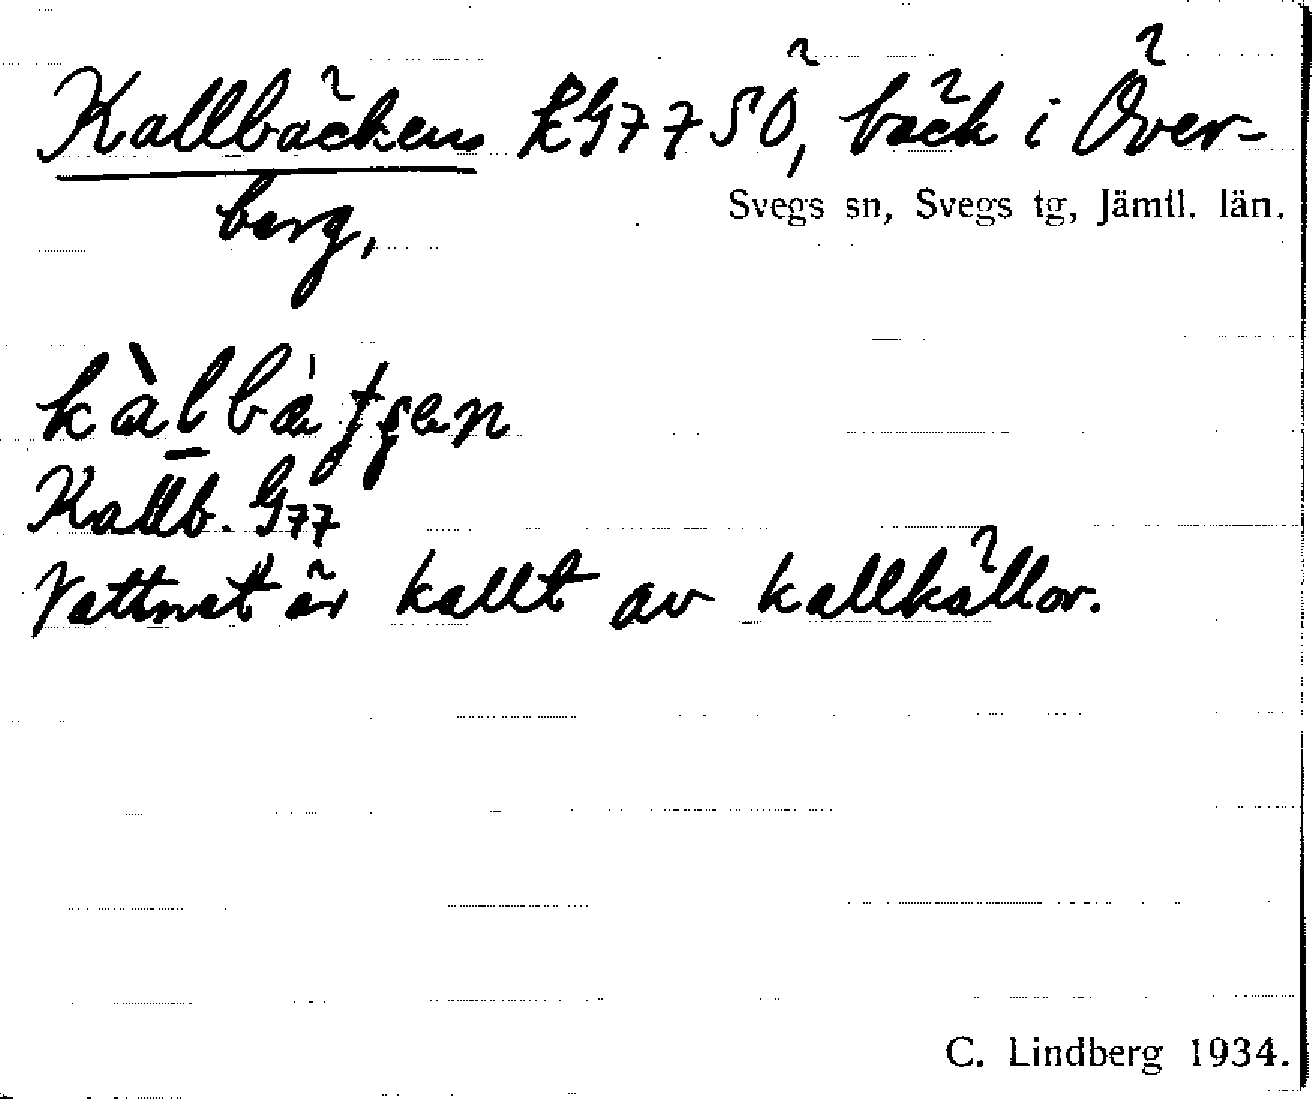 Kallbäcken k G77 SÖ, bäck i Över-
berg,
Svegs sn, Svegs tg, Jämtl. län.
Kallb. G77
Vattnet är kallt av kallkällor.
C. Lindberg 1934.